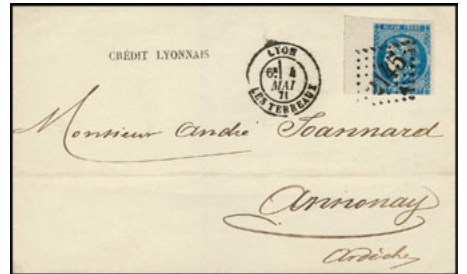 CRÉDIT LYONNAIS
LYON
6E 4
MAI
71
LES TERREAUX
Monsieur André Joannard
Annonay
Ardèche